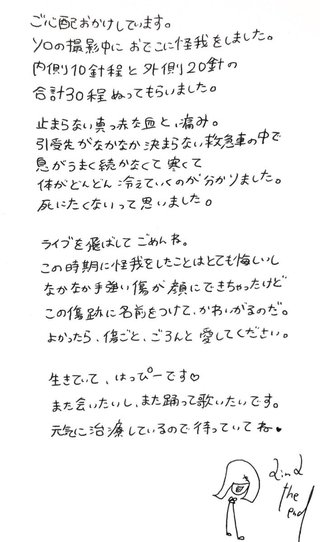 ご心配おかけしています。
ソロの撮影中におでこに怪我をしました。
内側10針程と外側20針の
合計30程ぬってもらいました。
止まらない真っ赤な血と、痛み。
引受先がなかなか決まらない救急車の中で
息がうまく続かなくて寒くて
体がどんどん冷えていくのが分かりました。
死にたくないって思いました。
ライブを飛ばしてごめんね。
この時期に怪我をしたことはとても悔しいし
なかなか手強い傷が顔にできちゃったけど
この傷跡に名前をつけて、かわいがるのだ。
よかったら、傷ごと、ごろんと愛してください。
生きていて、はっぴーです♡
また会いたいし、また踊って歌いたいです。
元気に治療しているので待っていてね♥
the
end